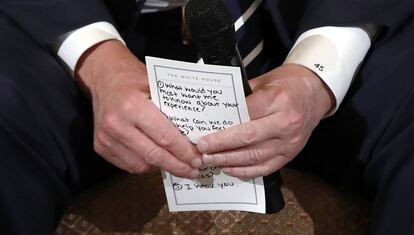 THE WHITE HOUSE
① What would you
most want me
to know about your
experience?
What can we do
help you feel
I
⑤ I hear you
45